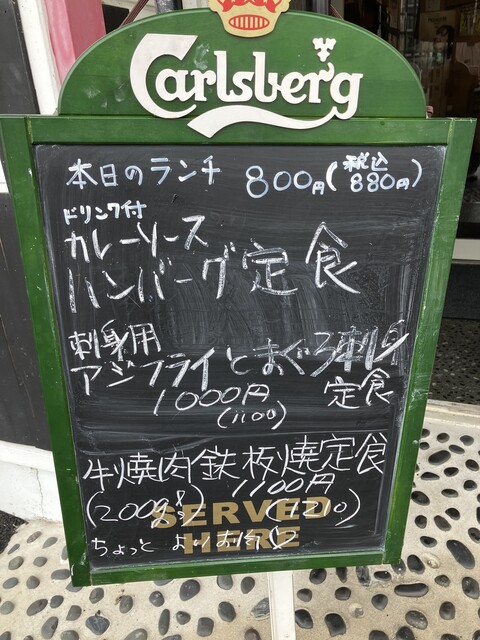 Carlsberg
本日のランチ 800円(税込880円)
ドリンク付
カレーソース
ハンバーグ定食
刺身用
アジフライとまぐろ刺身
1000円 定食
(1100)
牛焼肉鉄板焼定食
(200g) 1100円
(1210)
SERVED
HERE
ちょっと よいお肉